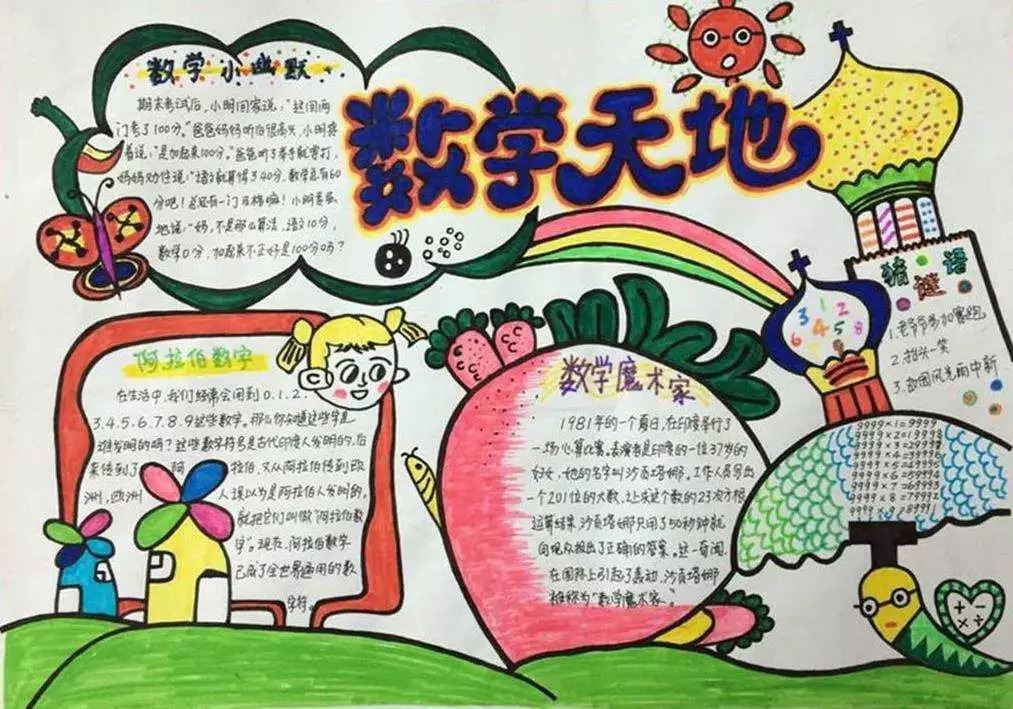 数学天地
数学小幽默
期末考试后,小明回家说:"这回两
门考了100分。"爸爸妈妈听后很高兴,小明接
着说:"是加起来100分。"爸爸听了举手就要打,
妈妈劝住说:"语文就算得了40分,数学总有60
分吧!总还有一门及格嘛!小明委屈
地说:"妈,不是那么算法,语文10分,
数学0分,加起来不正好是100分吗?
阿拉伯数字
在生活中,我们经常会用到0.1.2.
3.4.5.6.7.8.9这些数字。那么你知道这些字是
谁发明的吗?这些数字符号是古代印度人发明的,后
来传到了阿拉伯,又从阿拉伯传到欧
洲,欧洲人误以为是阿拉伯人发明的,
就把它们叫做"阿拉伯数
字"。现在,阿拉伯数字
已成了全世界通用的数
字符。
数学魔术家
1981年的一个夏日,在印度举行了
一场心算比赛。表演者是印度的一位37岁的
妇女,她的名字叫沙贡塔娜。工作人员写出
一个201位的大数,让求这个数的23次方根
运算结果,沙贡塔娜只用了50秒钟就
向观众报出了正确的答案。这一奇闻
在国际上引起了轰动,沙贡塔娜
被称为"数学魔术家"。
猜谜语
1.老爷爷参加赛跑
2.抬头一笑
3.故国风光雨中新
3 1 2
6 4 5 8
9999×1=9999
9999×2=19998
9999×4=39996
9999×5=49995
9999×6=59994
9999×7=69993
9999×8=79992
+ -
× ÷